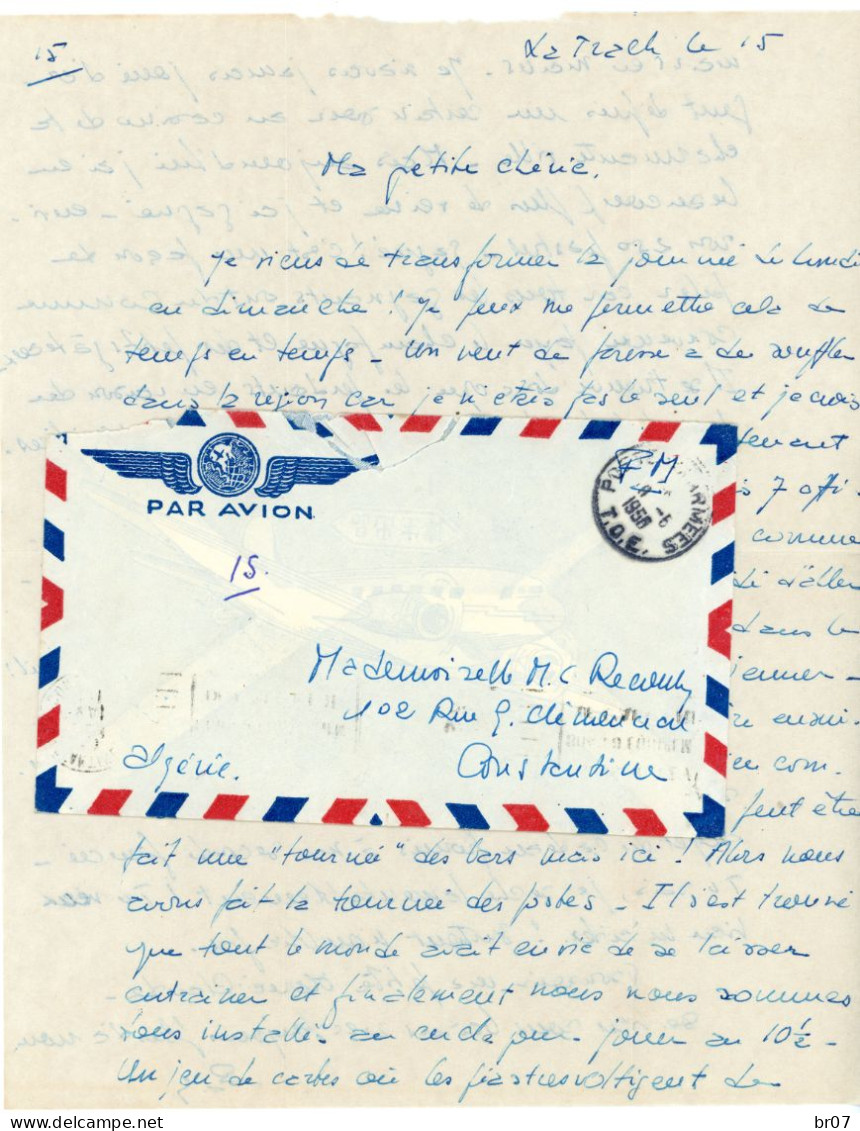 15
La Trach le 15
Ma petite chérie.
Je viens de transformer la journée de lundi
en dimanche ! Je peux me permettre cela de
temps en temps - Un vent de paresse a dû souffler
dans la région car je n'étais pas le seul et je crois
tenant
7 offi
comme
d'aller
dans le
jamer -
com.
peut être
fait une "tournée" des bars mais ici ! Alors nous
avons fait la tournée des postes - Il s'est trouvé
que tout le monde avait envie de se laisser
entrainer et finalement nous nous sommes
tous installé au cercle pour jouer au 10 1/2 -
Un jeu de cartes où les piastres voltigent de
PAR AVION
FM
POSTE AUX ARMEES
8 -6
1953
T.O.E.
15.
Mademoiselle M.C
102 Rue G. Clémenceau
Constantine
Algérie.
br07